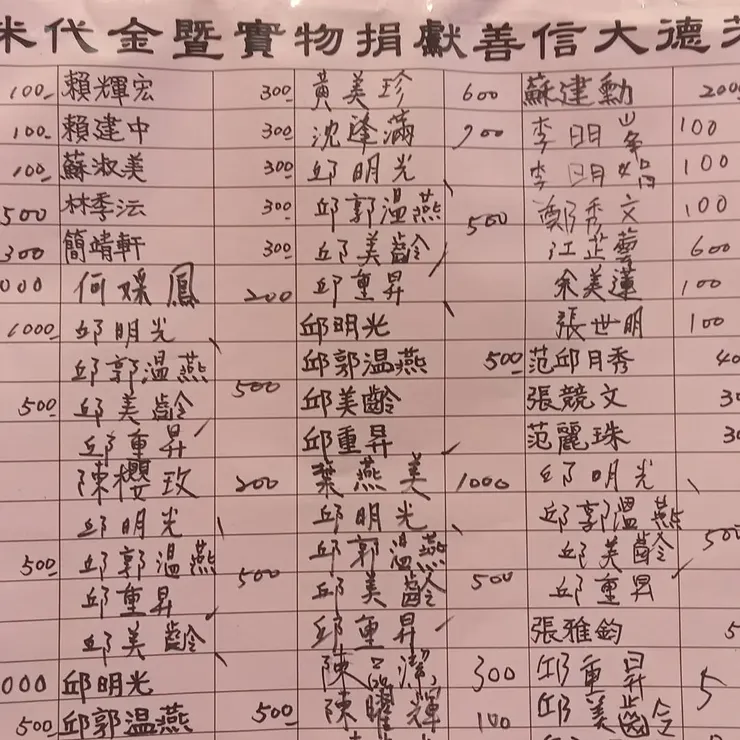 米代金暨實物捐獻善信大德芳
100 賴輝宏 300 黃美珍 600 蘇建勳 200
100 賴建中 300 沈逢滿 900 李明峯 100
100 蘇淑美 300 邱明光 李明 100
500 林季沄 300 邱郭温燕 500 鄭秀文 100
300 簡靖軒 300 邱美齡 江芷 600
000 何媒鳳 200 邱重昇 余美蓮 100
1000 邱明光 邱明光 張世明 100
邱郭温燕 500 邱郭温燕 500 范邱月秀 40
500 邱美齡 邱美齡 張競文 30
邱重昇 邱重昇 范麗珠 30
陳櫻玫 200 葉燕美 1000 邱明光
邱明光 邱明光 邱郭温燕 500
500 邱郭温燕 500 邱郭温燕 邱美齡
邱重昇 邱美齡 500 邱重昇
邱美齡 邱重昇 張雅鈞 5
000 邱明光 陳品潔 300 邱重昇 5
500 邱郭温燕 500 陳曜輝 100 邱美齡